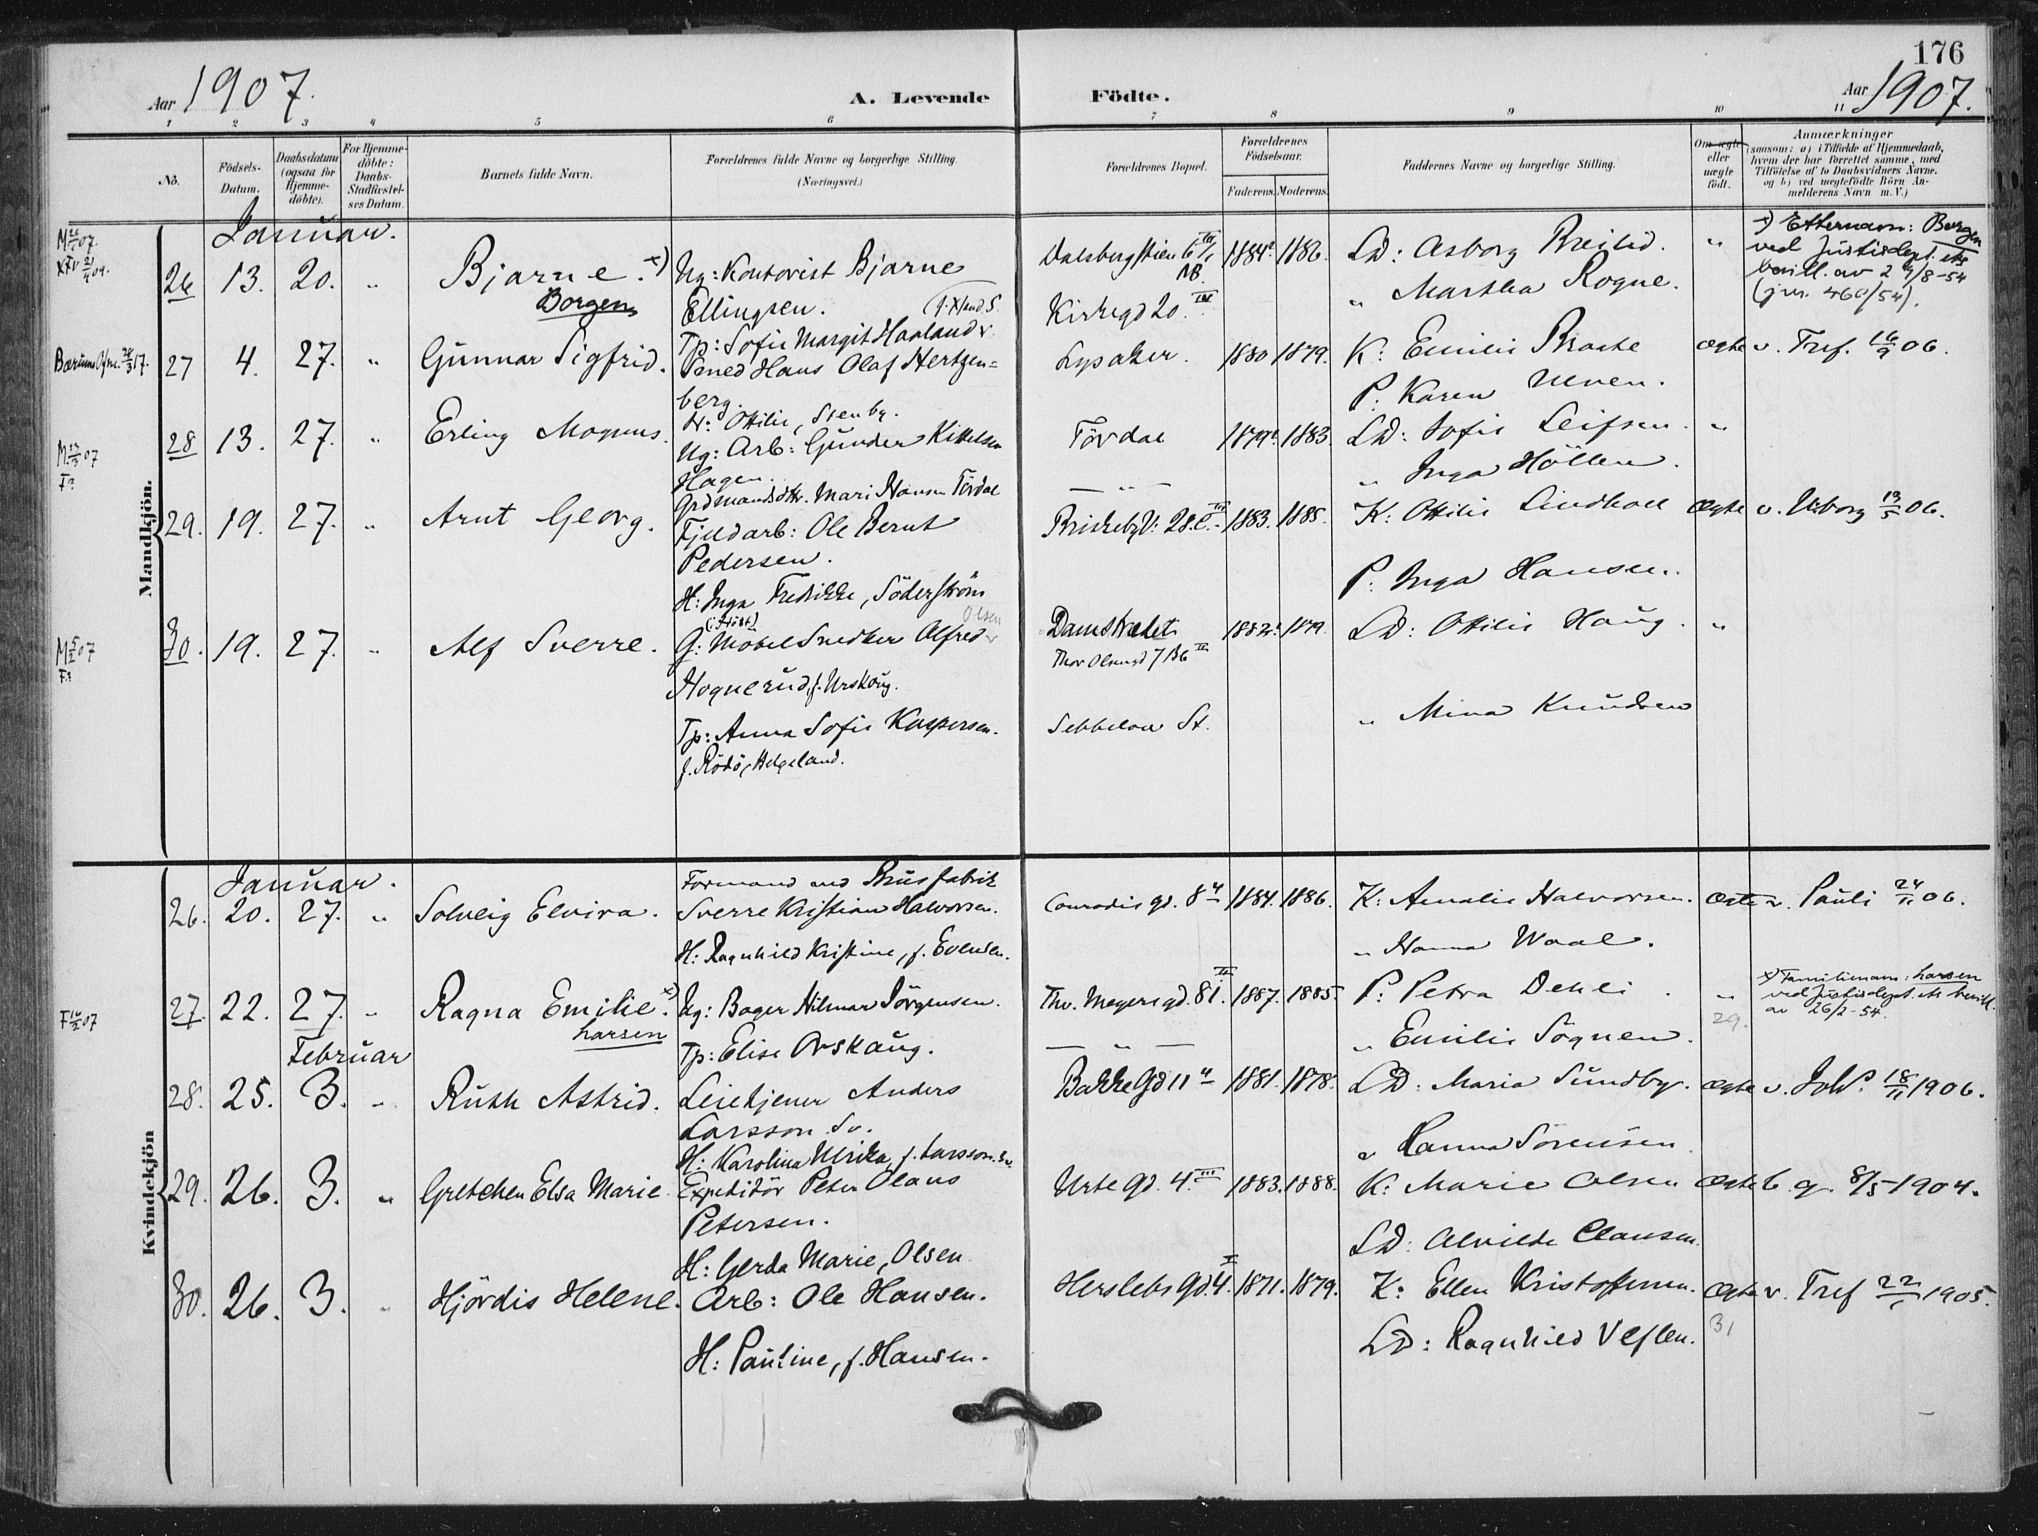 176
Aar 1907.
A. Levende
Födte.
Aar 1907.
1 2 3 4 5 6 7 8 9 10 11
No.
Födsels-Datum.
Daabsdatum (ogsaa for Hjemme-döbte).
For Hjemme-döbte: Daabs-Stadfæstel-ses Datum.
Barnets fulde Navn.
Forældrenes fulde Navne og borgerlige Stilling.
(Næringsvei.)
Forældrenes Bopæl.
Forældrenes Födselsaar.
Faderens. Moderens.
Faddernes Navne og borgerlige Stilling.
Om ægte eller uægte födt.
Anmærkninger
(saasom: a) i Tilfælde af Hjemmedaab, hvem der har forrettet samme, med Tilföielse af to Daabsvidners Navne. og b) ved uægtefödte Börn An-melderens Navn m. V.)
Mandkjön.
Januar.
26 13. 20. " Bjarne. x)
Borgen
Ug: Kontorist Bjarne
Ellingsen.
Tp: Sofie Margit Haaland
Dalsbergstien
Kirkegd 20. IV
1884 1886.
LD: Asborg Breilid.
" Martha Rogne.
"
x) Etternavn: Borgen
ved Justisdept. ets
bevill. av 24/8-54
(jnr. 460/54).
27 4. 27. " Gunnar Sigfrid.
Hans Olaf Hertzen=
berg.
H: Ottilie, Stenby.
Lysaker.
1880 1879.
K: Emilie Braate
P: Karen Ulven.
ægte v. Tref. 16/9 06.
28 13. 27. " Erling Magnus.
Ug: Arb: Gunder Kittelsen
Hagen.
Grdmandsdtr. Mari Hansen Tördal
Tördal
— " —
1879. 1883.
LD: Sofie Leifsen.
" Inga Höllen.
"
29. 19. 27. " Arnt Georg.
Fjeldarb: Ole Bernt
Pedersen.
H: Inga Fredikke, Söderström
Briskebyv: 28. III
1883. 1885.
K: Ottilie Lindholl
P: Inga Hansen.
ægte v. Uhborg 13/5 06.
30. 19. 27. " Alf Sverre.
G: Möbelsnedker Alfred
Olsen
Hognerud, f. Urskoug.
Tp: Anna Sofie Kaspersen.
f. Rödö, Helgeland.
Damstrædet
Thor Olsengd 7 B6 II
Sebbelow St.
1882. 1879.
LD: Ottilie Haug.
" Mina Knudsen
"
Kvindekjön
Januar.
26. 20. 27. " Solveig Elvira.
Formand ved Brusfabrik
Sverre Kristian Halvorsen.
H: Ragnhild Kristine, f. Evensen.
Conradis gd. 8
1884. 1886.
K: Amalie Halvorsen.
" Hanna Waal.
ægte v. Pauli 24/11 06.
27. 22. 27. " Ragna Emilie. x)
Larsen
Ug: Bager Hilmar Jörgensen.
Tp: Elise Orskaug.
Thv. Meyersgd. 81.
— " —
1887. 1885.
P: Petra Dehli.
" Emilie Sögnen.
"
29.
x) Familienavn: Larsen
ved Justisdept. ets bevill.
av 26/2-54.
Februar
28. 25. 3. " Ruth Astrid.
Leiekjener Anders
Larsson Sv.
H: Karolina Ulrika, f. Larsson. Sv.
Bakke Gd 11
1881. 1878.
LD: Maria Sundby.
" Hanna Sörensen
ægte v. Joh. 18/11 1906.
29. 26. 3. " Gretchen Elsa Marie.
Expeditör Peter Olaus
Petersen.
H: Gerda Marie, Olsen
Urte gd. 4. III
1883. 1888.
K: Marie Olsen
LD: Alvilde Clausen.
ægte b. g. 8/5 1904.
30. 26. 3. " Hjördis Helene.
Arb: Ole Hansen.
H: Pauline, f. Hansen.
Herslebs gd. 4. I
1871. 1879.
K: Ellen Kristoffersen.
LD: Ragnhild Veflen.
ægte v. Tref 22/1 1905.
31